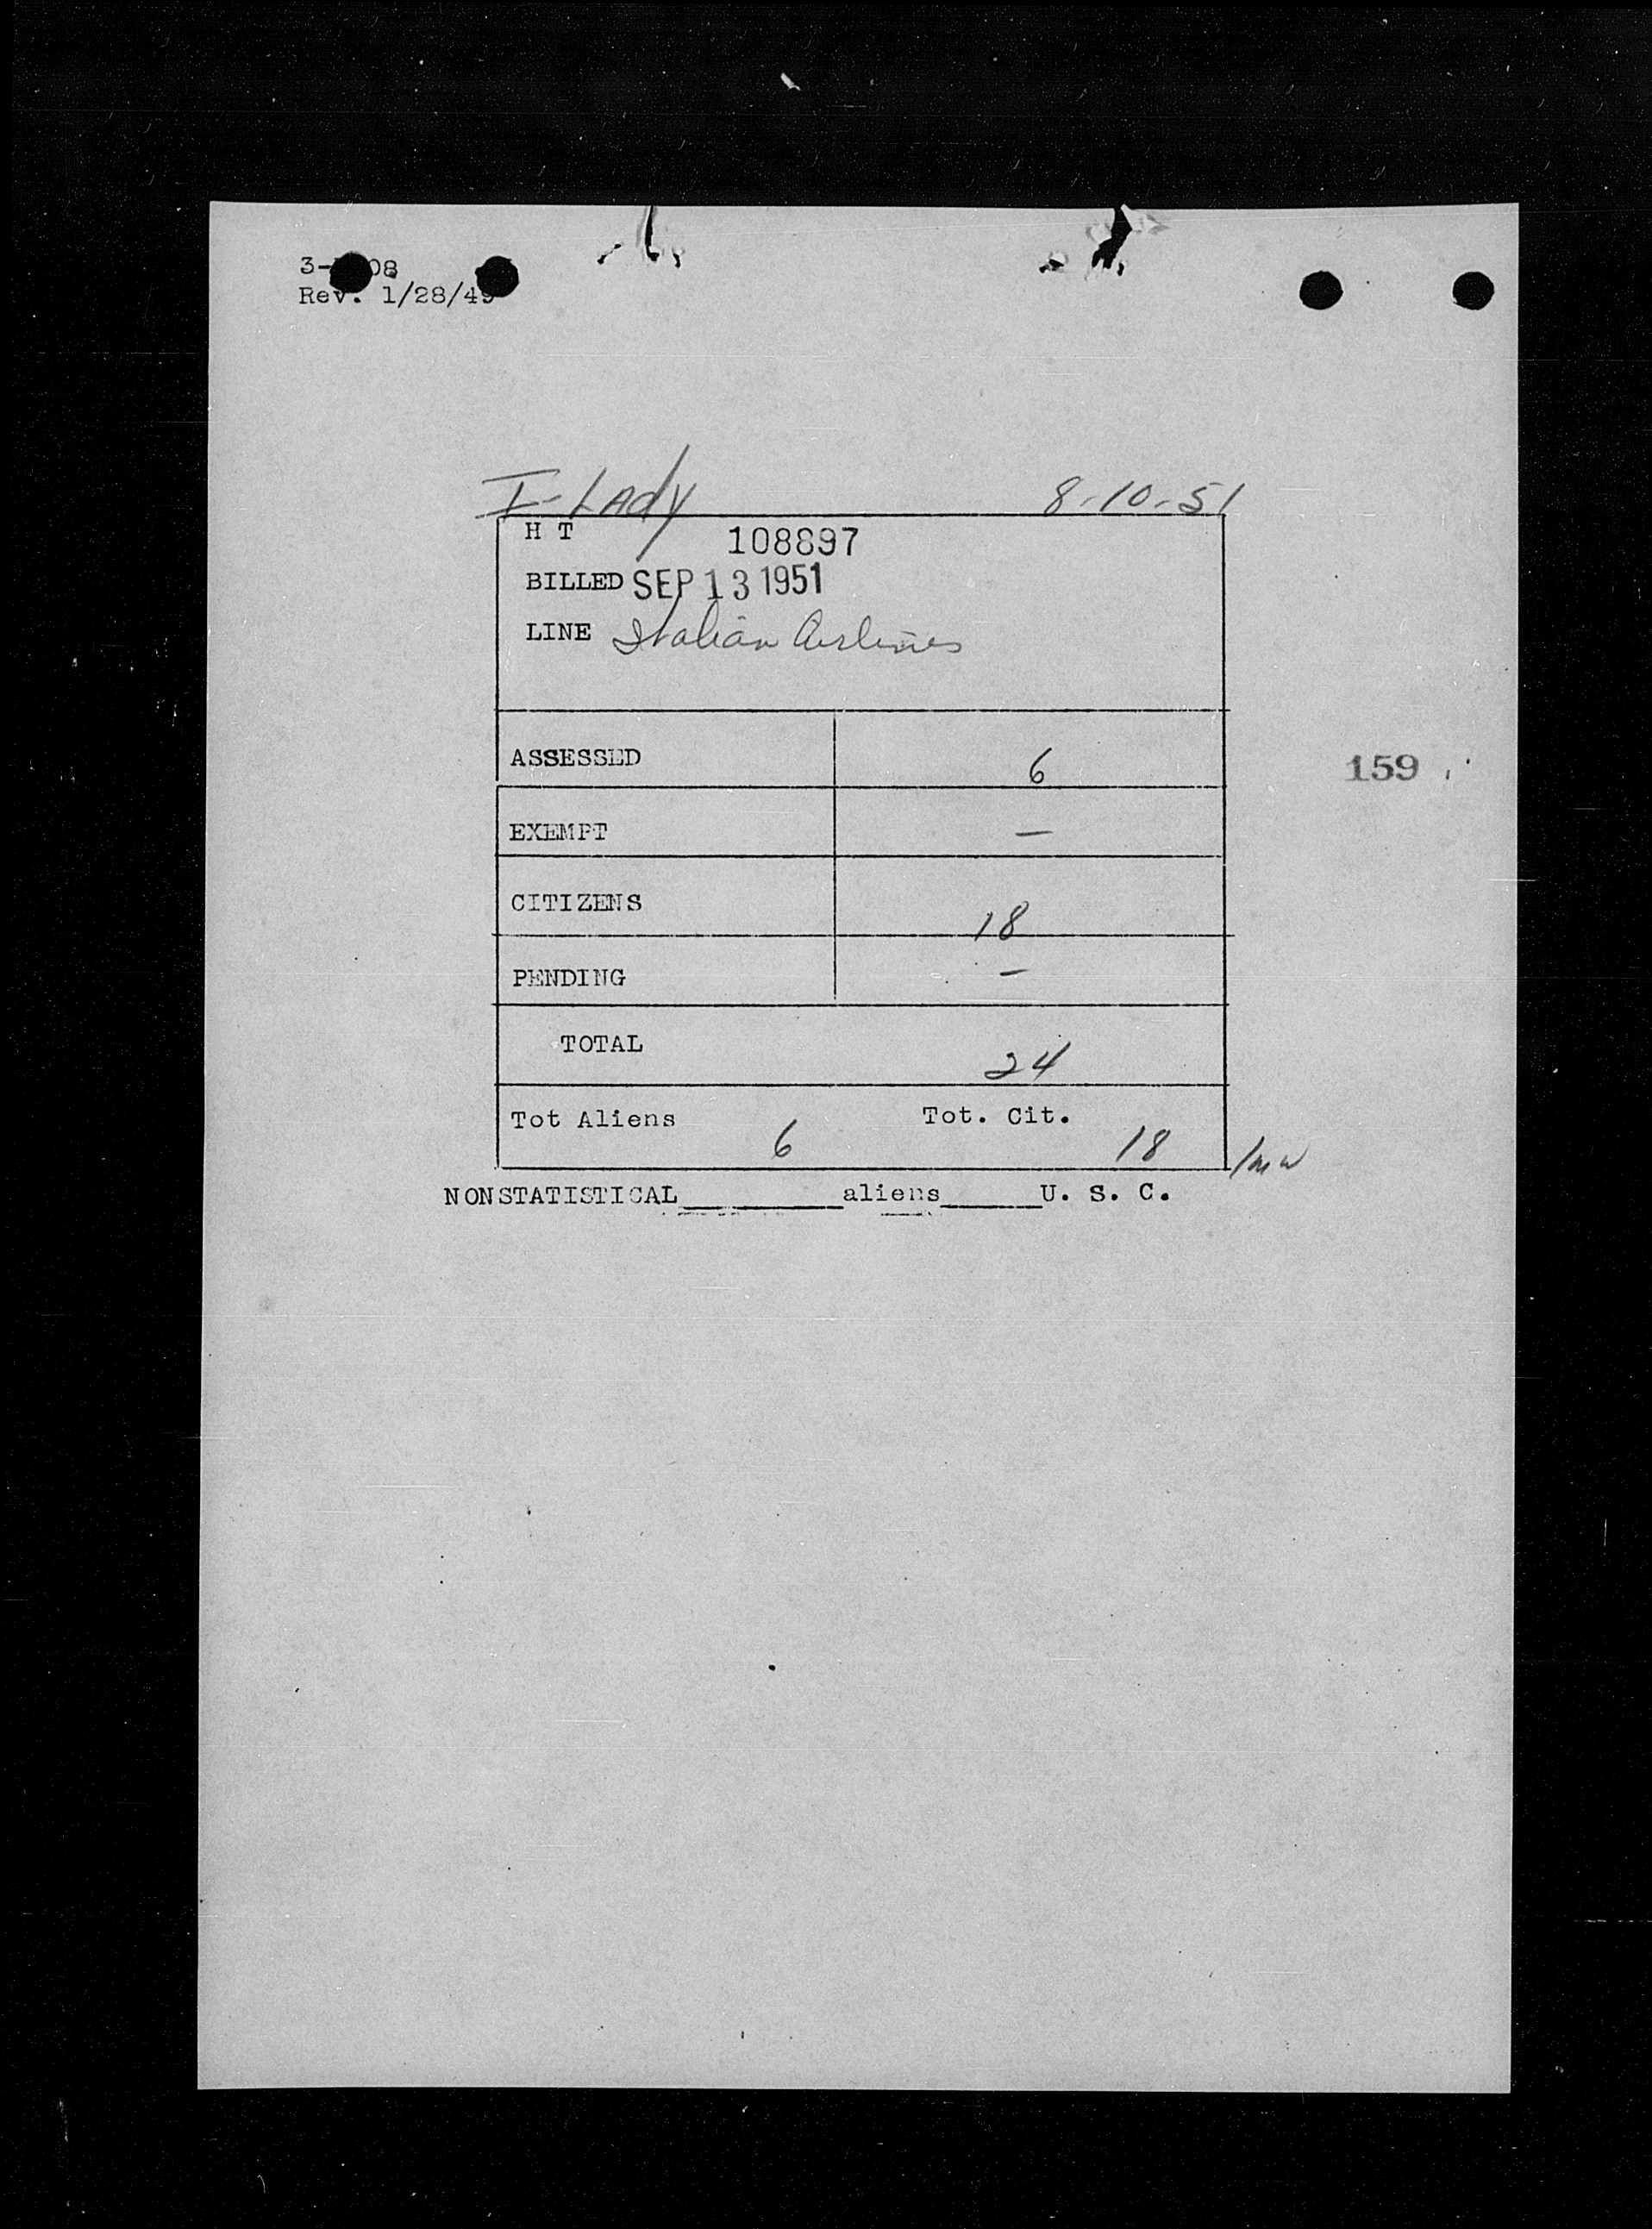 Rev. 1/28/49
I-LAdy 8-10-51
H T 108897
BILLED SEP 13 1951
LINE Italian Airlines
ASSESSED 6
159
EXEMPT —
CITIZENS 18
PENDING —
TOTAL 24
Tot Aliens 6 Tot. Cit. 18
NONSTATISTICAL________aliens_____U. S. C.